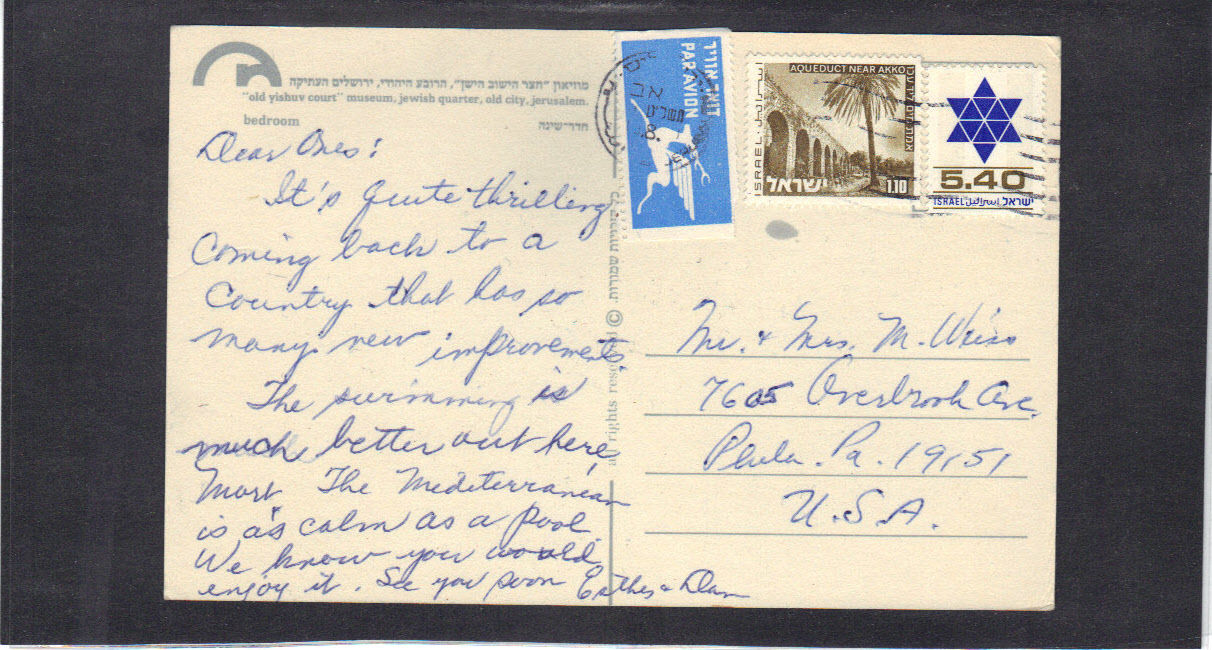 מוזיאון "חצר הישוב הישן", הרובע היהודי, ירושלים העתיקה
"old yishuv court" museum, jewish quarter, old city, jerusalem.
bedroom
חדר-שינה
Dear Ones:
It's quite thrilling
coming back to a
country that has so
many new improvements.
The swimming is
much better out here,
Mort. The Mediterranean
is as calm as a pool
We know you would
enjoy it. See you soon Esther & Dan
all rights reserved © כל הזכויות שמורות.
דואר אויר
PAR AVION
AQUEDUCT NEAR AKKO
ISRAEL
ישראל
1.10
5.40
ISRAEL اسرائيل ישראל
Mr. & Mrs. M. Weiss
7605 Overbrook Ave.
Phila. Pa. 19151
U.S.A.